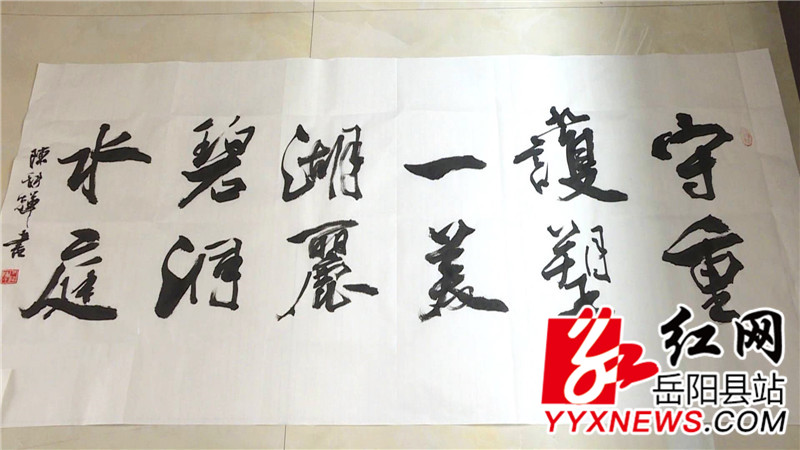 守護一湖碧水
重塑美麗洞庭
陳 書
红网
岳阳县站
YYXNEWS.COM